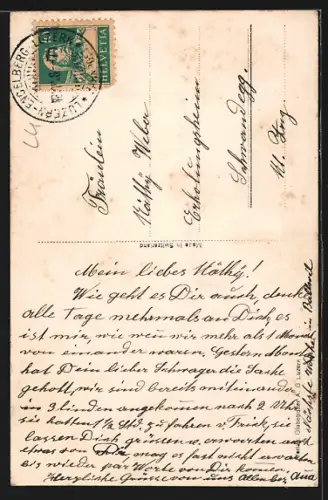 LUZERN-ENGELBERG-LUZERN
HELVETIA
Fräulein
Käthy Weber
Erholungsheim
Schwandegg.
Kt. Zug
Made in Switzerland
Mein liebes Käthy!
Wie geht es Dir auch, denke
alle Tage mehrmals an Dich, es
ist mir, wie wenn wir mehr als 1 Monat
von einander waren. Gestern Abend
hat Dein lieber Schwager die Sache
geholt, wir sind bereits miteinander
in 3 linden angekommen nach 2 Uhr
sie hatten 1 ½ Std. zu fahren v. Frick, sie
lassen Dich grüssen u. erwarten auch
etwas von Dir mag es fast nicht erwarten
bis wieder par Worte von Dir kommen.
Herzliche Grüsse von uns allen bes.
nächste Woche in Billeul